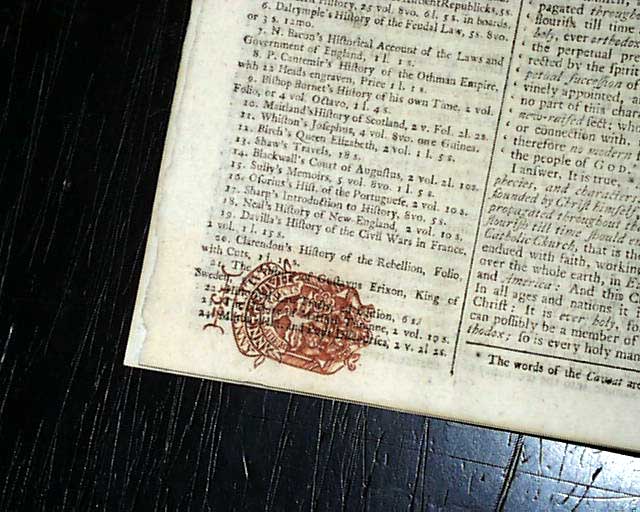 History, 25 vol. 8vo. 6l. 5s. in boards,
6. Dalrymple's History of the Feudal Law, 5s. 8vo.
or 3 s. 12mo.
7. N. Bacon's Historical Account of the Laws and
Government of England, 1 l. 1 s.
8. P. Cantemir's History of the Othman Empire,
with 22 Heads engraven, Price 1 l. 1 s.
9. Bishop Burnet's History of his own Time, 2 vol.
Folio, or 4 vol. Octavo, 1 l. 4 s.
10. Maitland's History of Scotland, 2 v. Fol. 2l. 2s.
11. Whiston's Josephus, 4 vol. 8vo. one Guinea.
12. Birch's Queen Elizabeth, 2 vol. 1 l. 5 s.
13. Shaw's Travels, 18 s.
14. Blackwall's Court of Augustus, 2 vol. 2l. 10s.
15. Sully's Memoirs, 5 vol. 8vo. 1 l. 5 s.
16. Osorius's Hist. of the Portuguese, 2 vol. 10 s.
17. Sharp's Introduction to History, 8vo. 5s.
18. Neal's History of New-England, 2 vol. 10 s.
19. Davilla's History of the Civil Wars in France,
2 vol. 1 l. 15 s.
20. Clarendon's History of the Rebellion, Folio,
with Cuts, 1 l.
21. The Erixon, King of
Sweden
6 s.
2 vol. 10 s.
24. 2 v. 2l 2s.
pagated through
flourish till time
holy, ever orthodox
the perpetual pre
rected by the spirit
petual succession of
vinely appointed, a
no part of this char
new-raised sect; wh
or connection with,
therefore no modern
the people of GOD.
I answer, It is true,
phecies, and character
founded by Christ himself
propagated throughout
flourish till time should
Catholic Church, that is th
endued with faith, working
over the whole earth, in E
and America: And this C
In all ages and nations it
Christ: It is ever holy, fo
can possibly be a member of
thodox; so is every holy ma
* The words of the Caveat are